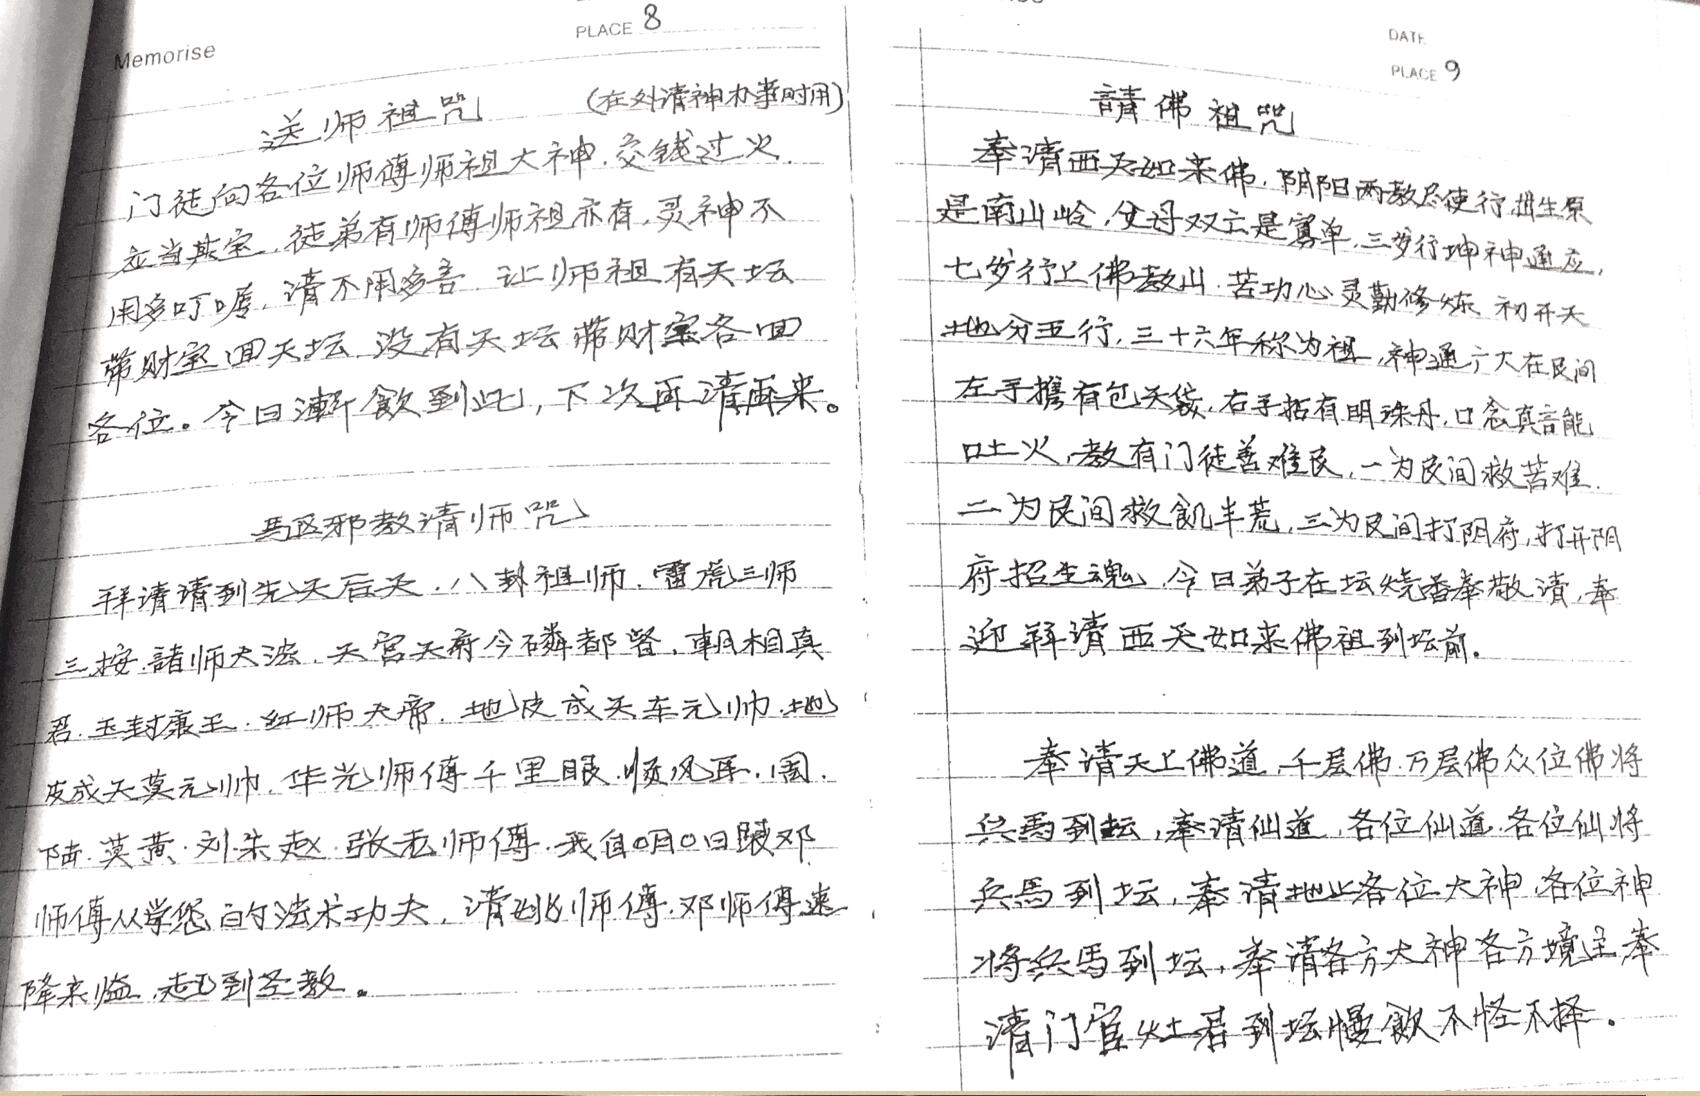 Memorise
PLACE 8
送师祖咒 (在外请神办事时用)
门徒向各位师傅师祖大神.交钱过火.
应当其宝,徒弟有师傅师祖亦有,灵神不
用多叮咛,请不用多言.让师祖有天坛
带财宝回天坛.没有天坛带财宝各回
各位。今日渐饮到此,下次再请再来。
馬区邪教请师咒
拜请请到先天后天.八封祖师.雷虎三师
三按.諸师大法.天宫天府今磷都督.朝相真
君.玉封康王.红师大帝.地皮成天车元帅.地
皮成天莫元帅.华光师傅千里眼.顺风耳.周.
陆.莫黄.刘朱赵.张老师傅.我自0月0日跟邓
师傅从学您的法术功夫,请姚师傅.邓师傅速
降来临,赶到圣教。
DATE
PLACE 9
請佛祖咒
奉请西天如来佛,阴阳两教尽使行,出生原
是南山岭,父母双亡是寡单,三岁行坤神通应,
七岁行上佛教山.苦功心灵勤修炼.初开天
地分五行,三十六年称为祖,神通广大在民间
左手携有包天袋,右手括有明珠丹,口念真言能
吐火,教有门徒善难民,一为民间救苦难.
二为民间救飢半荒,三为民间打阴府,打开阴
府招生魂,今日弟子在坛烧香奉敬请,奉
迎拜请西天如来佛祖到坛前.
奉请天上佛道,千层佛.万层佛众位佛将
兵馬到坛,奉请仙道,各位仙道.各位仙将
兵馬到坛,奉请地上各位大神,各位神
将兵馬到坛,奉请各方大神各方境主,奉
请门官灶君到坛慢飲不怪不择.